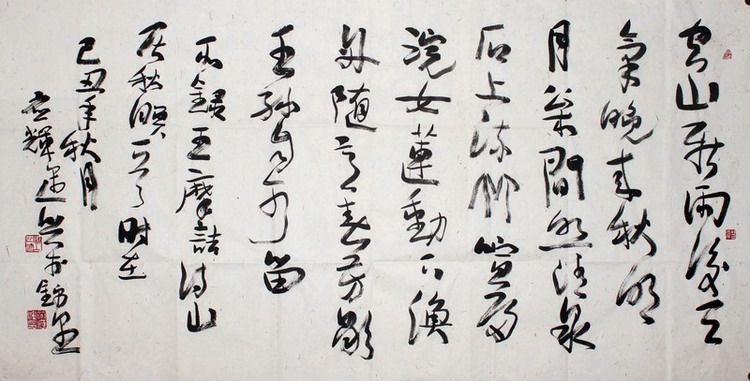 空山新雨後天
氣晚来秋明
月松間照清泉
石上流竹喧歸
浣女蓮動下漁
舟随意春芳歇
王孫自可留
右錄王摩詰詩山
居秋暝一首时在
己丑年秋月
輝